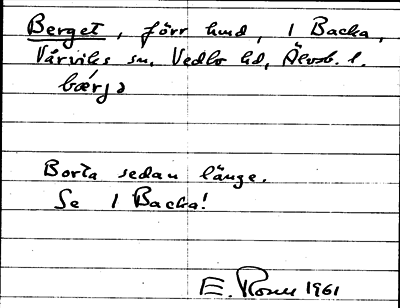 Berget, förr hmd, 1 Backa,
Vårviks sn, Vedbo hd, Älvsb. l.
bǽrjə
Borta sedan länge.
Se 1 Backa!
E. Rosen 1961